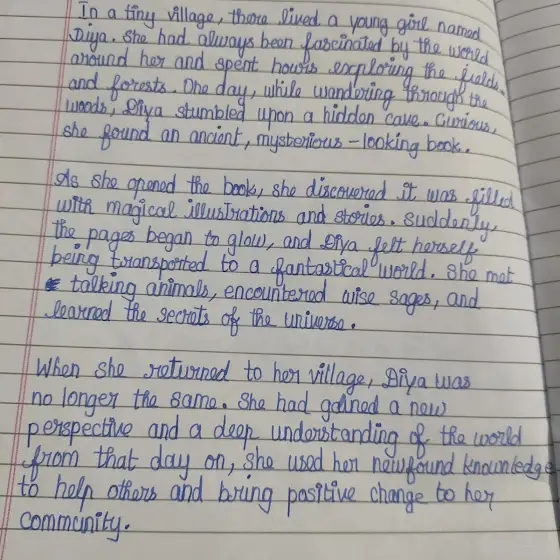 In a tiny village, there lived a young girl named
Diya. She had always been fascinated by the world
around her and spent hours exploring the fields
and forests. One day, while wandering through the
woods, Diya stumbled upon a hidden cave. Curious,
she found an ancient, mysterious-looking book.
As she opened the book, she discovered it was filled
with magical illustrations and stories. Suddenly,
the pages began to glow, and Diya felt herself
being transported to a fantastical world. She met
talking animals, encountered wise sages, and
learned the secrets of the universe.
When she returned to her village, Diya was
no longer the same. She had gained a new
perspective and a deep understanding of the world
from that day on, she used her newfound knownledge
to help others and bring positive change to her
community.